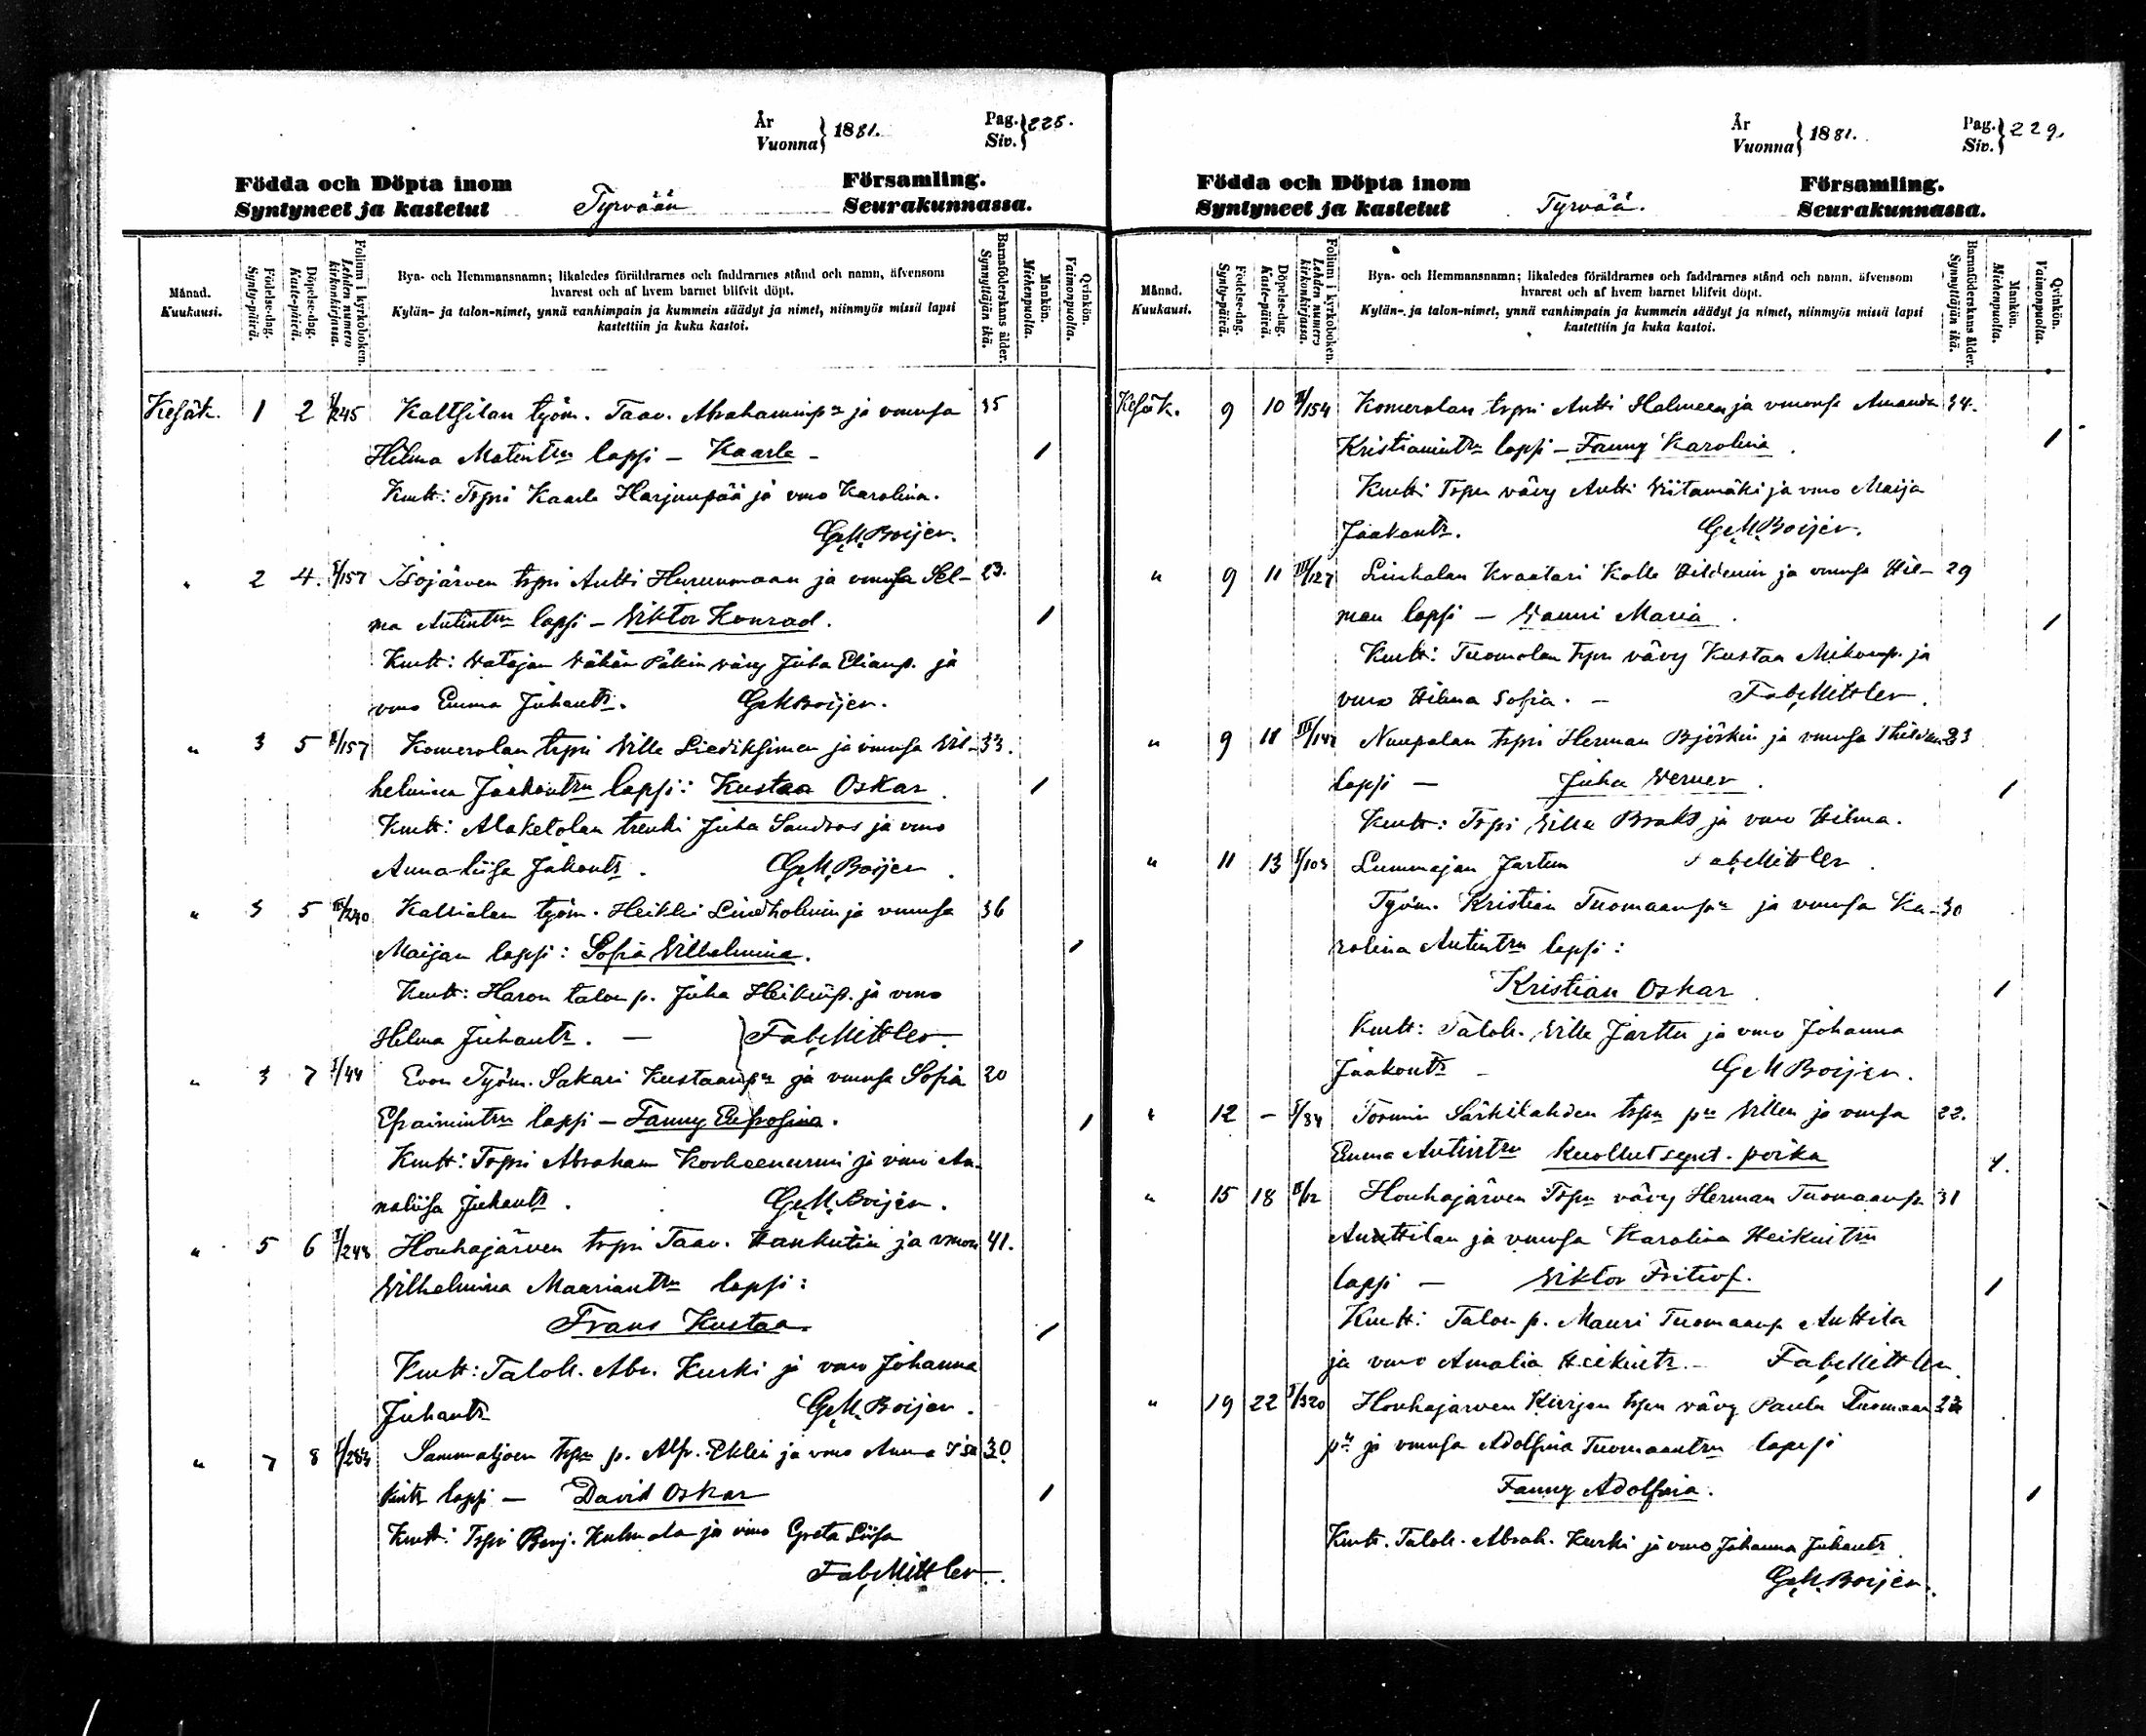 År
Vuonna } 1881.
Pag.
Siv. } 225.
Födda och Döpta inom Församling.
Syntyneet ja kastetut Tyrvään Seurakunnassa.
Månad.
Kuukausi.
Födelse-dag.
Synty-päivä.
Döpelse-dag.
Kaste-päivä.
Folium i kyrkoboken.
Lehden numero
kirkonkirjassa.
Bya- och Hemmansnamn; likaledes föräldrarnes och faddrarnes stånd och namn, äfvensom
hvarest och af hvem barnet blifvit döpt.
Kylän- ja talon-nimet, ynnä vanhimpain ja kummein säädyt ja nimet, niinmyös missä lapsi
kastettiin ja kuka kastoi.
Barnaföderskans ålder.
Synnyttäjän ikä.
Mankön.
Miehenpuolta.
Qvinkön.
Vaimonpuolta.
Kesäk. 1 2 I/245 Kaltsilan työm. Taav. Abrahaminpn ja vmonsa 35
Hilma Matintrn lapsi – Kaarle – /
Kmtt: Tspri Kaarle Harjunpää ja vmo Karolina.
G.M. Boijer.
" 2 4. I/157 Isojärven tspri Antti Hurunmaan ja vmonsa Sel- 23.
ma Antintrn lapsi – Viktor Konrad. /
Kmtt: Vatajan Vähän Päkin vävy Juha Elianp. ja
vmo Emma Juhantr. G.M. Boijer.
" 3 5 II/157 Komerolan tspri Ville Liediksimen ja vmonsa Vil- 33.
helmina Jaakontrn lapsi: Kustaa Oskar. /
Kmtt: Alaketolan trenki Juha Sandros ja vmo
Anna-liisa Juhontr. G.M. Boijer.
" 3 5 III/240 Kallialan työm. Heikki Lindholmin ja vmonsa 36
Maijan lapsi: Sofia Vilhelmina. /
Kmtt: Haron talon p. Juha Heikinp. ja vmo
Helma Juhantr. – Fab. Mittler.
" 3 7 I/44 Evon Työm. Sakari Kustaanpn ja vmonsa Sofia 20
Efraimintrn lapsi – Fanny Eufrosina. /
Kmtt: Tspri Abraham Korkeenurmi ja vmo An-
naliisa Juhantr. G.M. Boijer.
" 5 6 I/248 Houhajärven tspri Taav. Hankutin ja vmon 41.
Wilhelmina Maariantrn lapsi:
Frans Kustaa. /
Kmtt: Taloll. Abr. Kurki ja vmo Johanna
Juhantr G.M. Boijer.
" 7 8 I/283 Sammaljoen tspn p. Alfr. Eklin ja vmo Anna Isa 30.
kintr lapsi – David Oskar /
Kmtt: Tspri Benj. Kulmala ja vmo Greta Liisa
Fab. Mittler.
År
Vuonna } 1881.
Pag.
Siv. } 229.
Födda och Döpta inom Församling.
Syntyneet ja kastetut Tyrvää. Seurakunnassa.
Månad.
Kuukausi.
Födelse-dag.
Synty-päivä.
Döpelse-dag.
Kaste-päivä.
Folium i kyrkoboken.
Lehden numero
kirkonkirjassa.
Bya- och Hemmansnamn; likaledes föräldrarnes och faddrarnes stånd och namn, äfvensom
hvarest och af hvem barnet blifvit döpt.
Kylän- ja talon-nimet, ynnä vanhimpain ja kummein säädyt ja nimet, niinmyös missä lapsi
kastettiin ja kuka kastoi.
Barnaföderskans ålder.
Synnyttäjän ikä.
Mankön.
Miehenpuolta.
Qvinkön.
Vaimonpuolta.
Kesäk. 9 10 II/154 Komerolan tspri Antti Halmeen ja vmonsa Amanda 34.
Kristianintrn lapsi – Fanny Karolina. /
Kmtt: Tspn vävy Antti Viitamäki ja vmo Maija
Jaakontr. G.M. Boijer.
" 9 11 III/127 Liuhalan kraatari Kalle Hildenin ja vmonsa Hil- 29
man lapsi – Vanni Maria. /
Kmtt: Tuomolan tspn vävy Kustaa Mikonp. ja
vmo Hilma Sofia. – Fab. Mittler.
" 9 11 III/147 Nuupalan tspri Herman Björkin ja vmonsa Thildan 23
lapsi – Juha Verner. /
Kmtt: Tspri Ville Braks ja vmo Hilma.
" 11 13 I/103 Lummajan Jartun Fab. Mittler.
Työm. Kristian Tuomaanpn ja vmonsa Ka- 30
rolina Antintrn lapsi:
Kristian Oskar. /
Kmtt: Taloll. Ville Jarttu ja vmo Johanna
Jaakontr – G.M. Boijer.
" 12 – I/84 Tormin Särkilahden tspn pn Villen ja vmonsa 22.
Emma Antintrn kuollut synt. poika 1.
" 15 18 II/12 Houhajärven Tspn vävy Herman Tuomaanp. 31
Anttilan ja vmonsa Karolina Heikintrn
lapsi – Viktor Fritiof. /
Kmtt: Talon p. Mauri Tuomaanp Anttila
ja vmo Amalia Heikintr. – Fab. Mittler.
" 19 22 I/320 Houhajärven Kurjen tspn vävy Paulu Tuomaan 22
pn ja vmonsa Adolfina Tuomaantrn lapsi
Fanny Adolfina. /
Kmtt. Taloll. Abrah. Kurki ja vmo Johanna Juhantr
G.M. Boijer.